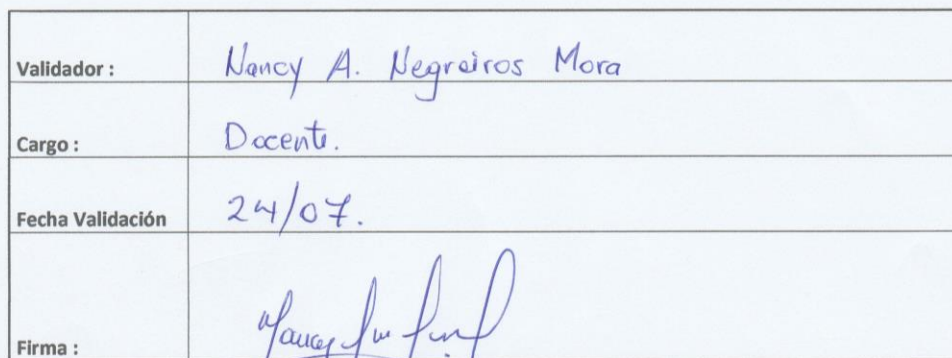 Validador : Nancy A. Negreiros Mora
Cargo : Docente.
Fecha Validación 24/07.
Firma :